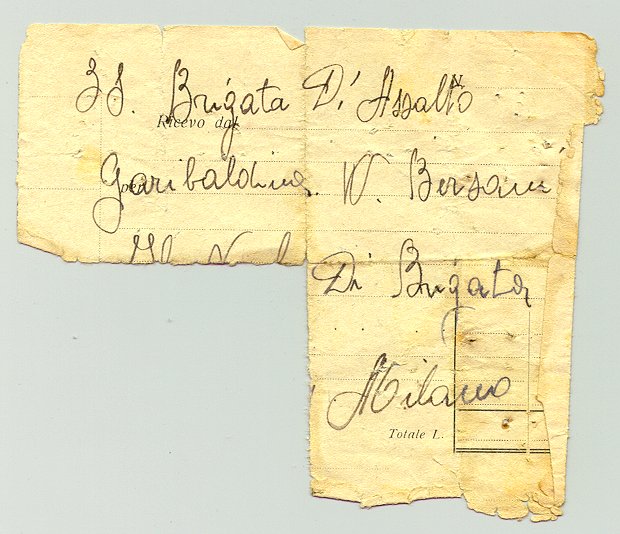 Brigata Di Assalto
N.
Ricevo dal
Garibaldina W. Bersani
Di Brigata
Milano
Totale L.